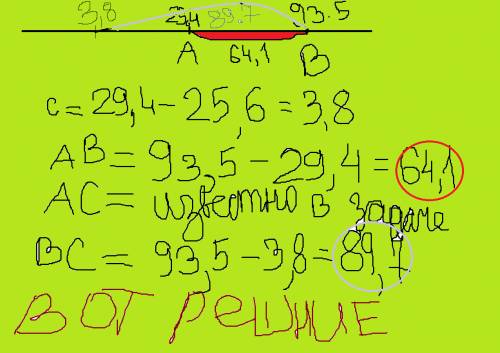 3,8 29,4 89.7 93.5
A 64,1 B
c = 29,4 - 25,6 = 3,8
AB = 93,5 - 29,4 = 64,1
AC = известно в задаче
BC = 93,5 - 3,8 = 89,7
ВОТ РеШНИЕ